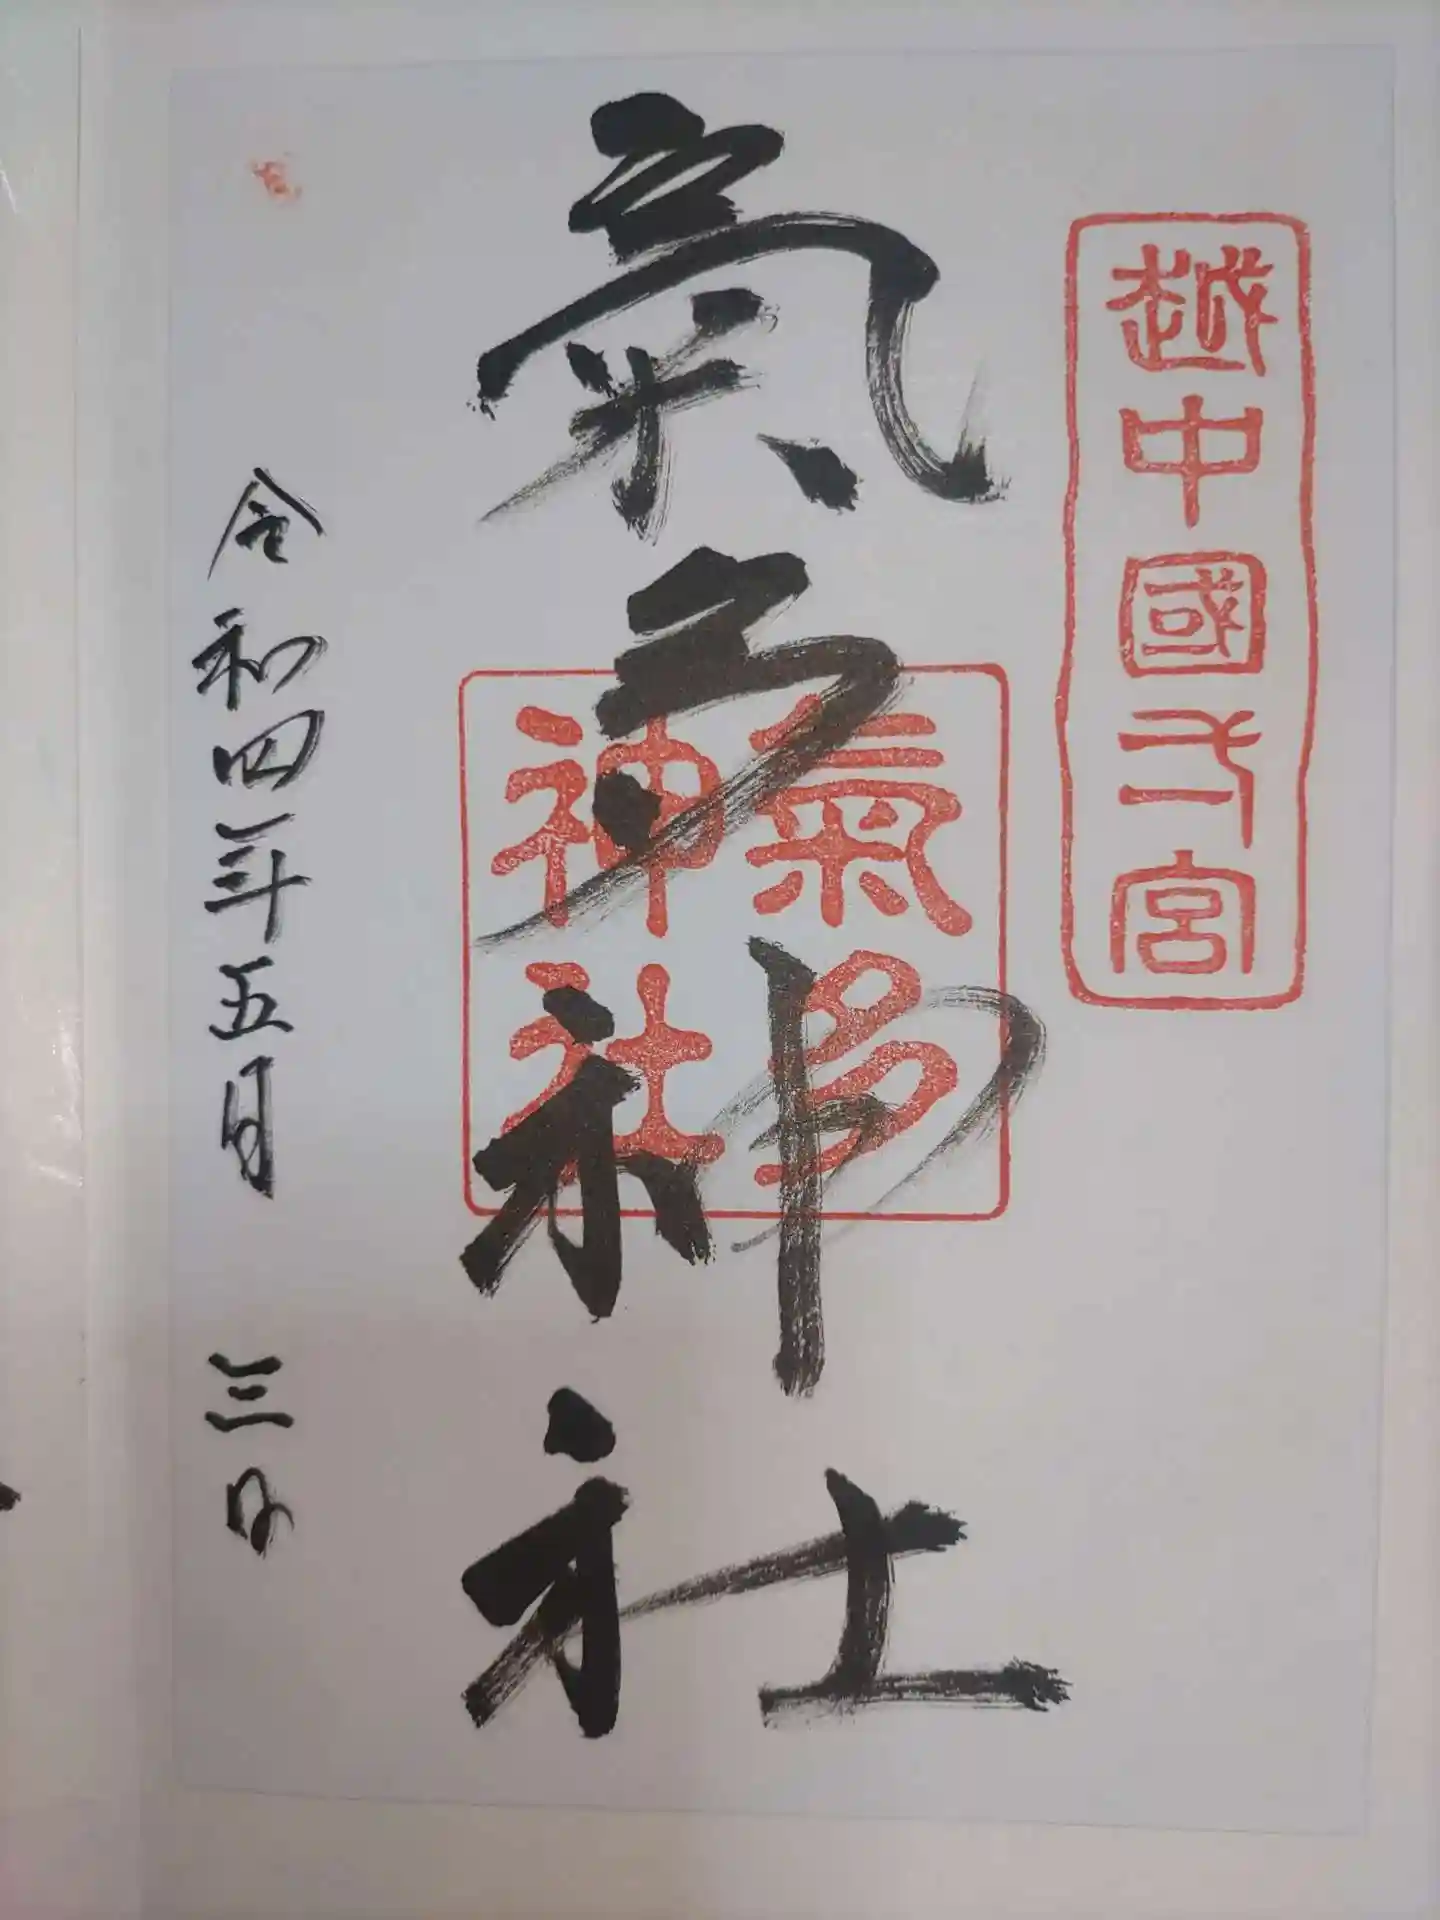 越中國弌宮
氣多神社
氣多
神社
令和四年五月三日